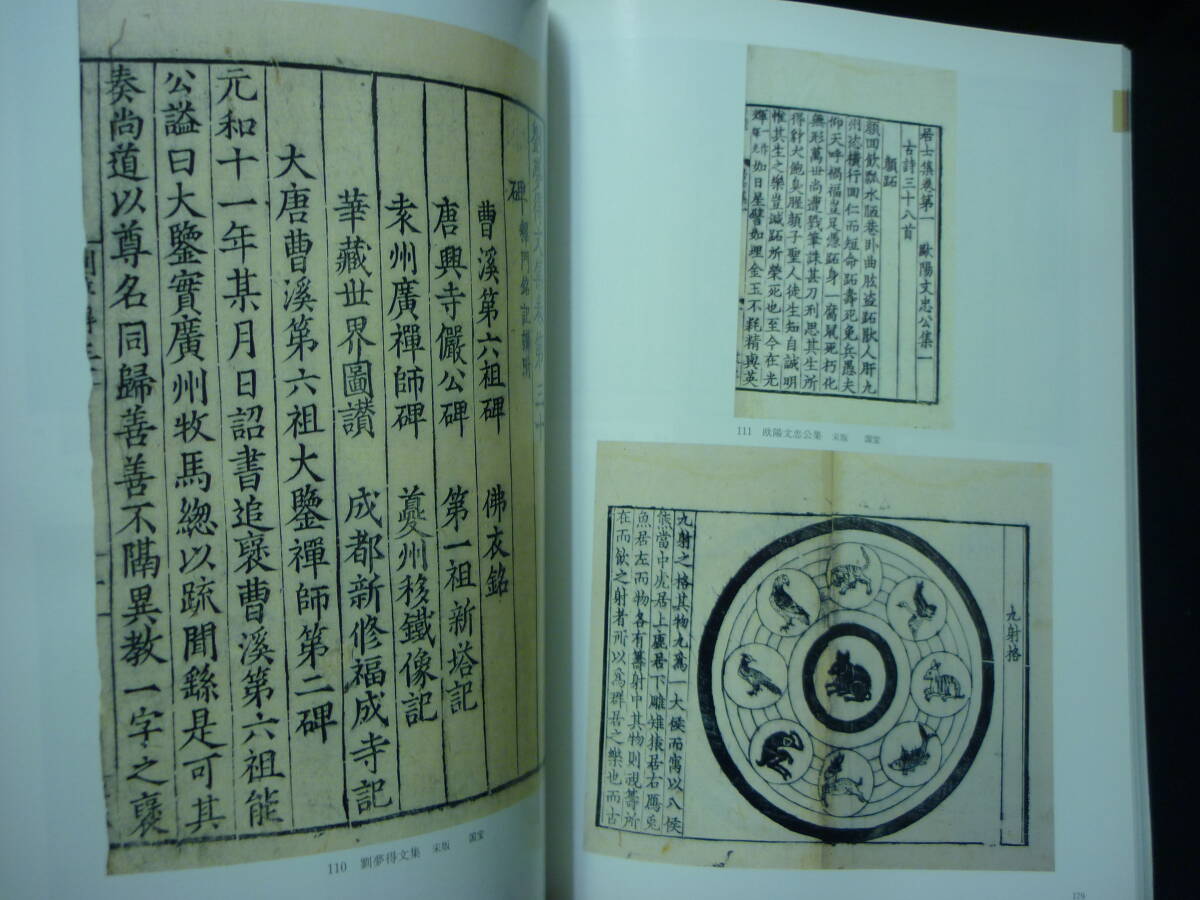 碑
曹溪第六祖碑　佛衣銘
唐興寺儼公碑　第一祖新塔記
袁州廣禪師碑　夔州移鐵像記
華藏世界圖讃　成都新修福成寺記
大唐曹溪第六祖大鑒禪師第二碑
元和十一年某月日詔書追襃曹溪第六祖能
公謚曰大鑒實廣州牧馬總以疏聞繇是可其
奏尚道以尊名同歸善善不隔異教一字之襃
110　劉夢得文集　宋版　国宝
居士集卷第一　歐陽文忠公集一
古詩三十八首
顏跖
顏回飲瓢水陋巷卧曲肱盗跖猒人肝九
州恣横行回仁而短命跖壽死免兵愚夫
仰天呼禍福豈足憑跖身一腐鼠死朽化
無形萬世尚遭戮筆誅甚刀刑思其生所
得豺犬飽臭腥顏子聖人徒生知自誠明
惟其生之樂豈减跖所榮死也至今在光
輝一作華光如日星譬如埋金玉不耗精與英
111　欧陽文忠公集　宋版　国宝
九射格
九射之格其物九爲一大侯而寓以八侯
熊當中虎居上鹿居下鵰雉猿居右鴈兎
魚居左而物各有籌射中其物則視籌所
在而飲之射者所以爲群居之樂也而古
179